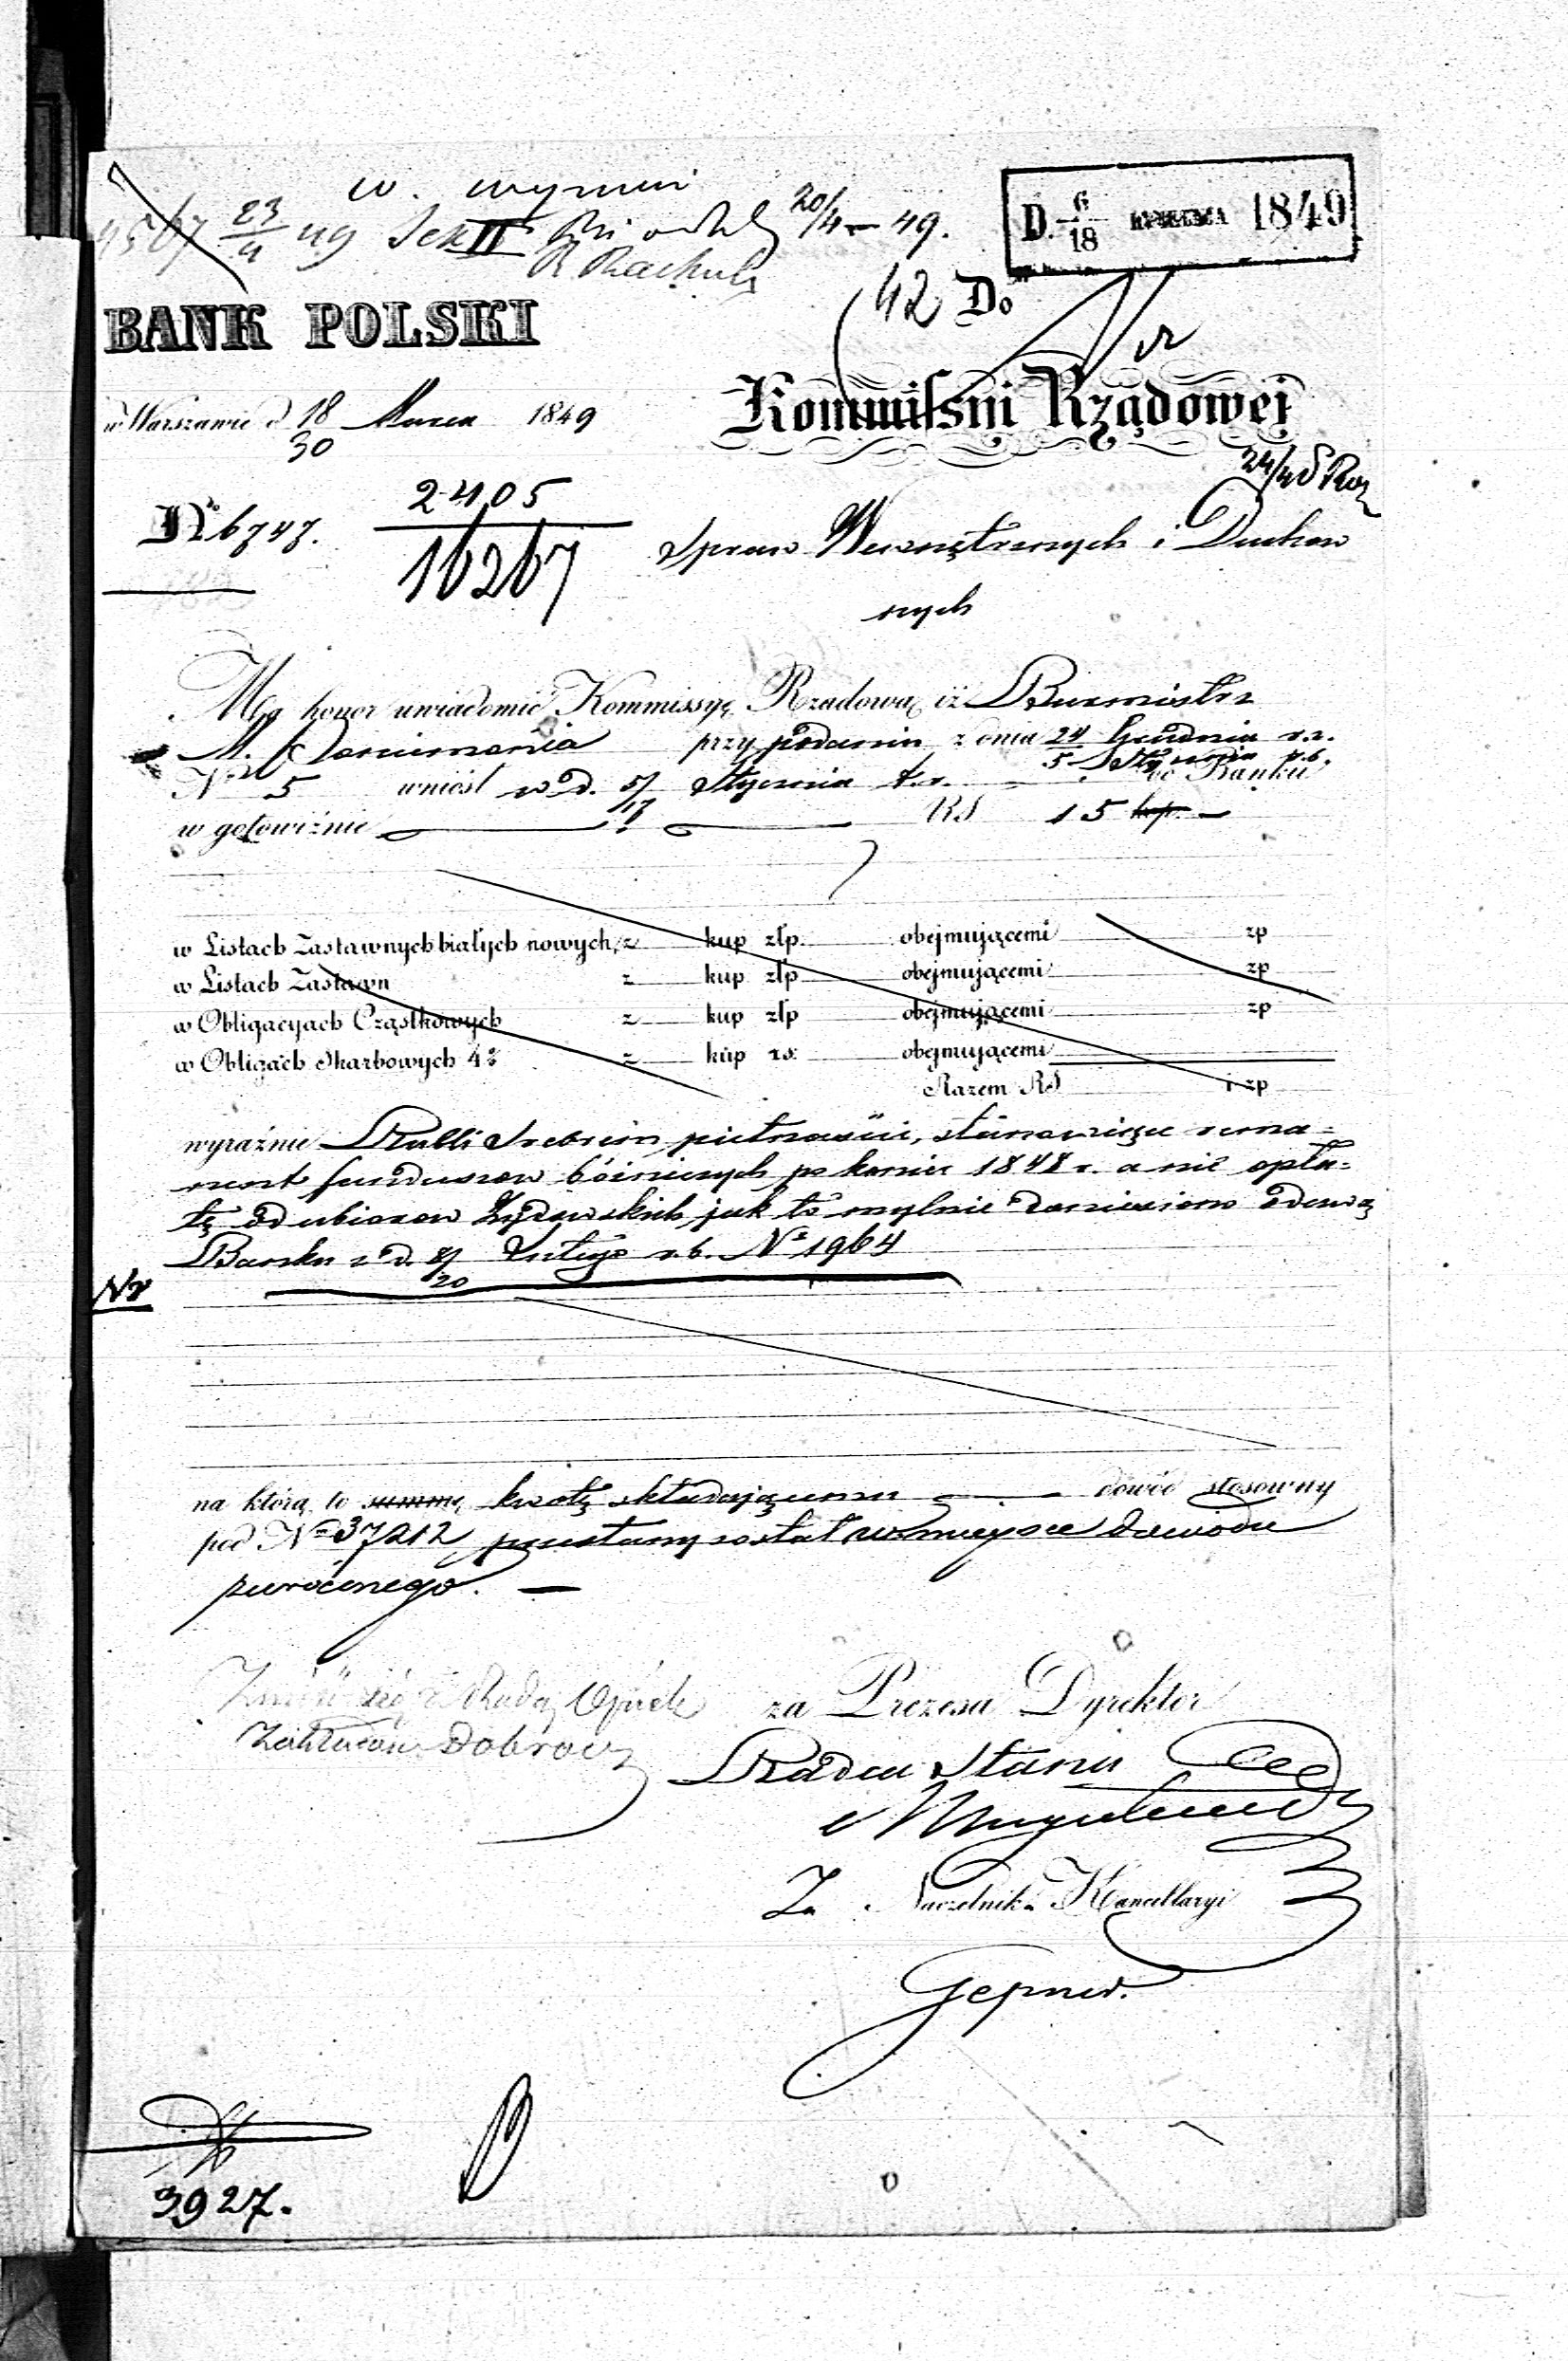 w. wymini
4567 23/4 49 Sek II 20/4 – 49.
D. 6/18 KWIETNIA 1849
42 Do
BANK POLSKI
Kommissyi Rządowej
w Warszawie d 18/30 Marca 1849
24/4
No 6747.
2405
16267
Spraw Wewnętrznych i Duchow
nych
Mą honor uwiadomić Kommissyę Rządową iż Burmistrz
M. przy podaniu z dnia 24 Grudnia v.r.
5 Stycznia r.b.
No 5 wniósł w d. 5/17 Stycznia t.r. do Banku
w gotowiźnie RS 15 kp. –
w Listach Zastawnych białych nowych, z kup złp. obejmującemi zp
w Listach Zastawn z kup złp obejmującemi zp
w Obligacyach Cząstkowych z kup złp obejmującemi zp
w Obligach Skarbowych 4% z kup rs: obejmującemi
Razem RS i zp
wyraźnie Rubli Srebrem piętnaście, stanowiące rema-
nent funduszow bóżniczych po koniec 1848 r. a nie opła-
tę od ubiorow Żydowskich, jak to mylnie doniesiono odezwą
Banku z d. 8/20 Lutego r.b. No 1964
Nr
na którą to summę kwotę składającemu dowód stosowny
pod No 37212 przesłany został w miejsce dowodu
zwróconego. –
Rady Opiek
Zakładow Dobrocz
za Prezesa Dyrektor
Radca Stanu
Za Naczelnika Kancellaryi
Gepner.
3927.